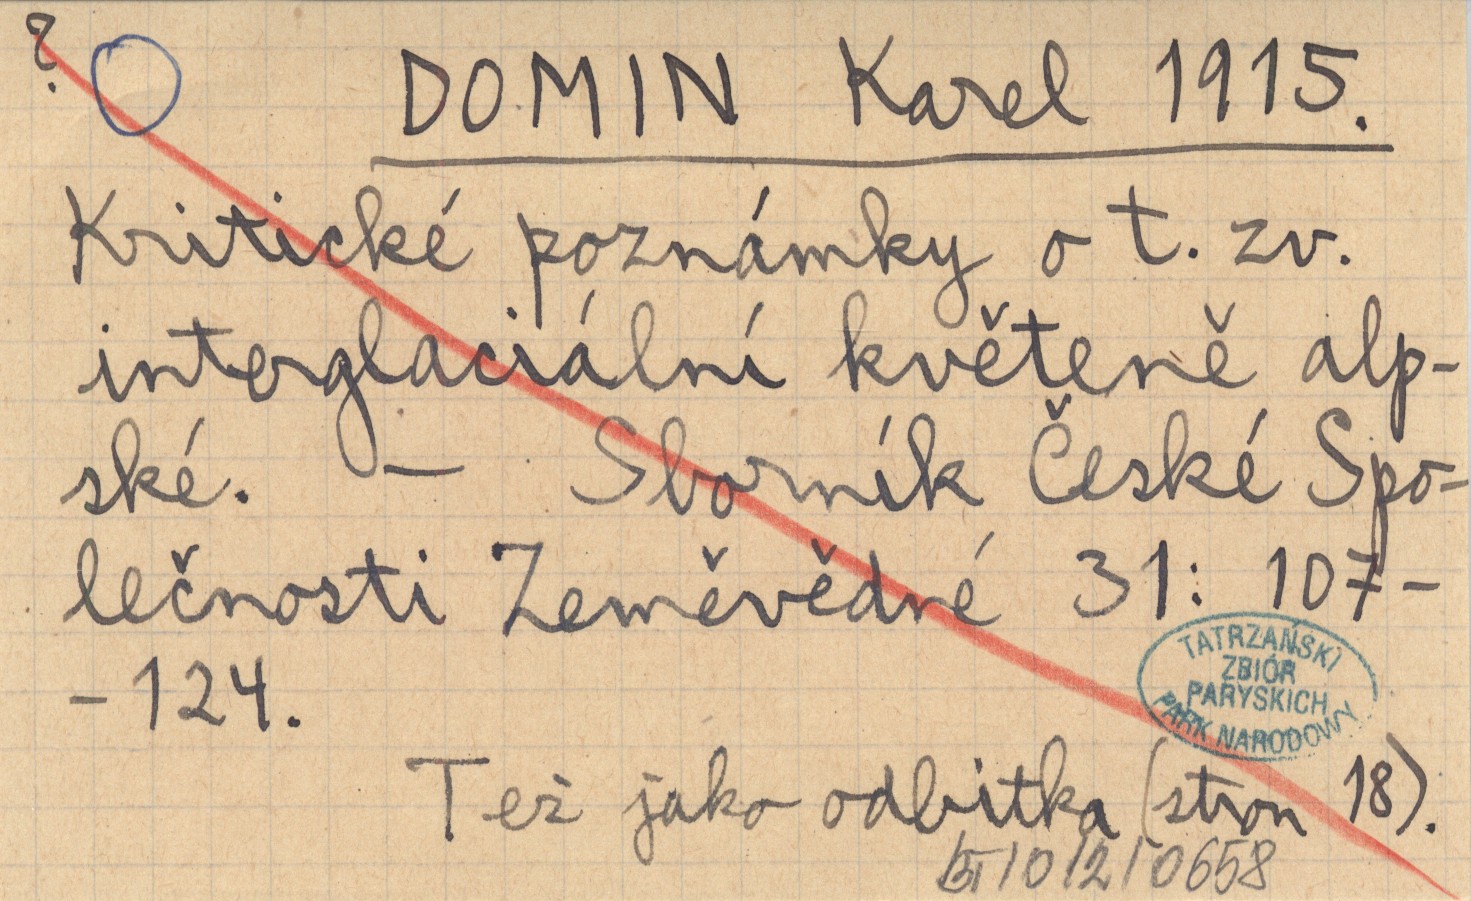 ?
DOMIN Karel 1915.
Kritické poznámky o t. zv.
interglaciální květeně alp-
ské. — Sborník České Spo-
lečnosti Zeměvědné 31: 107-
-124.
TATRZAŃSKI
ZBIÓR
PARYSKICH
PARK NARODOWY
Też jako odbitka (stron 18).
BT/0/2/0658